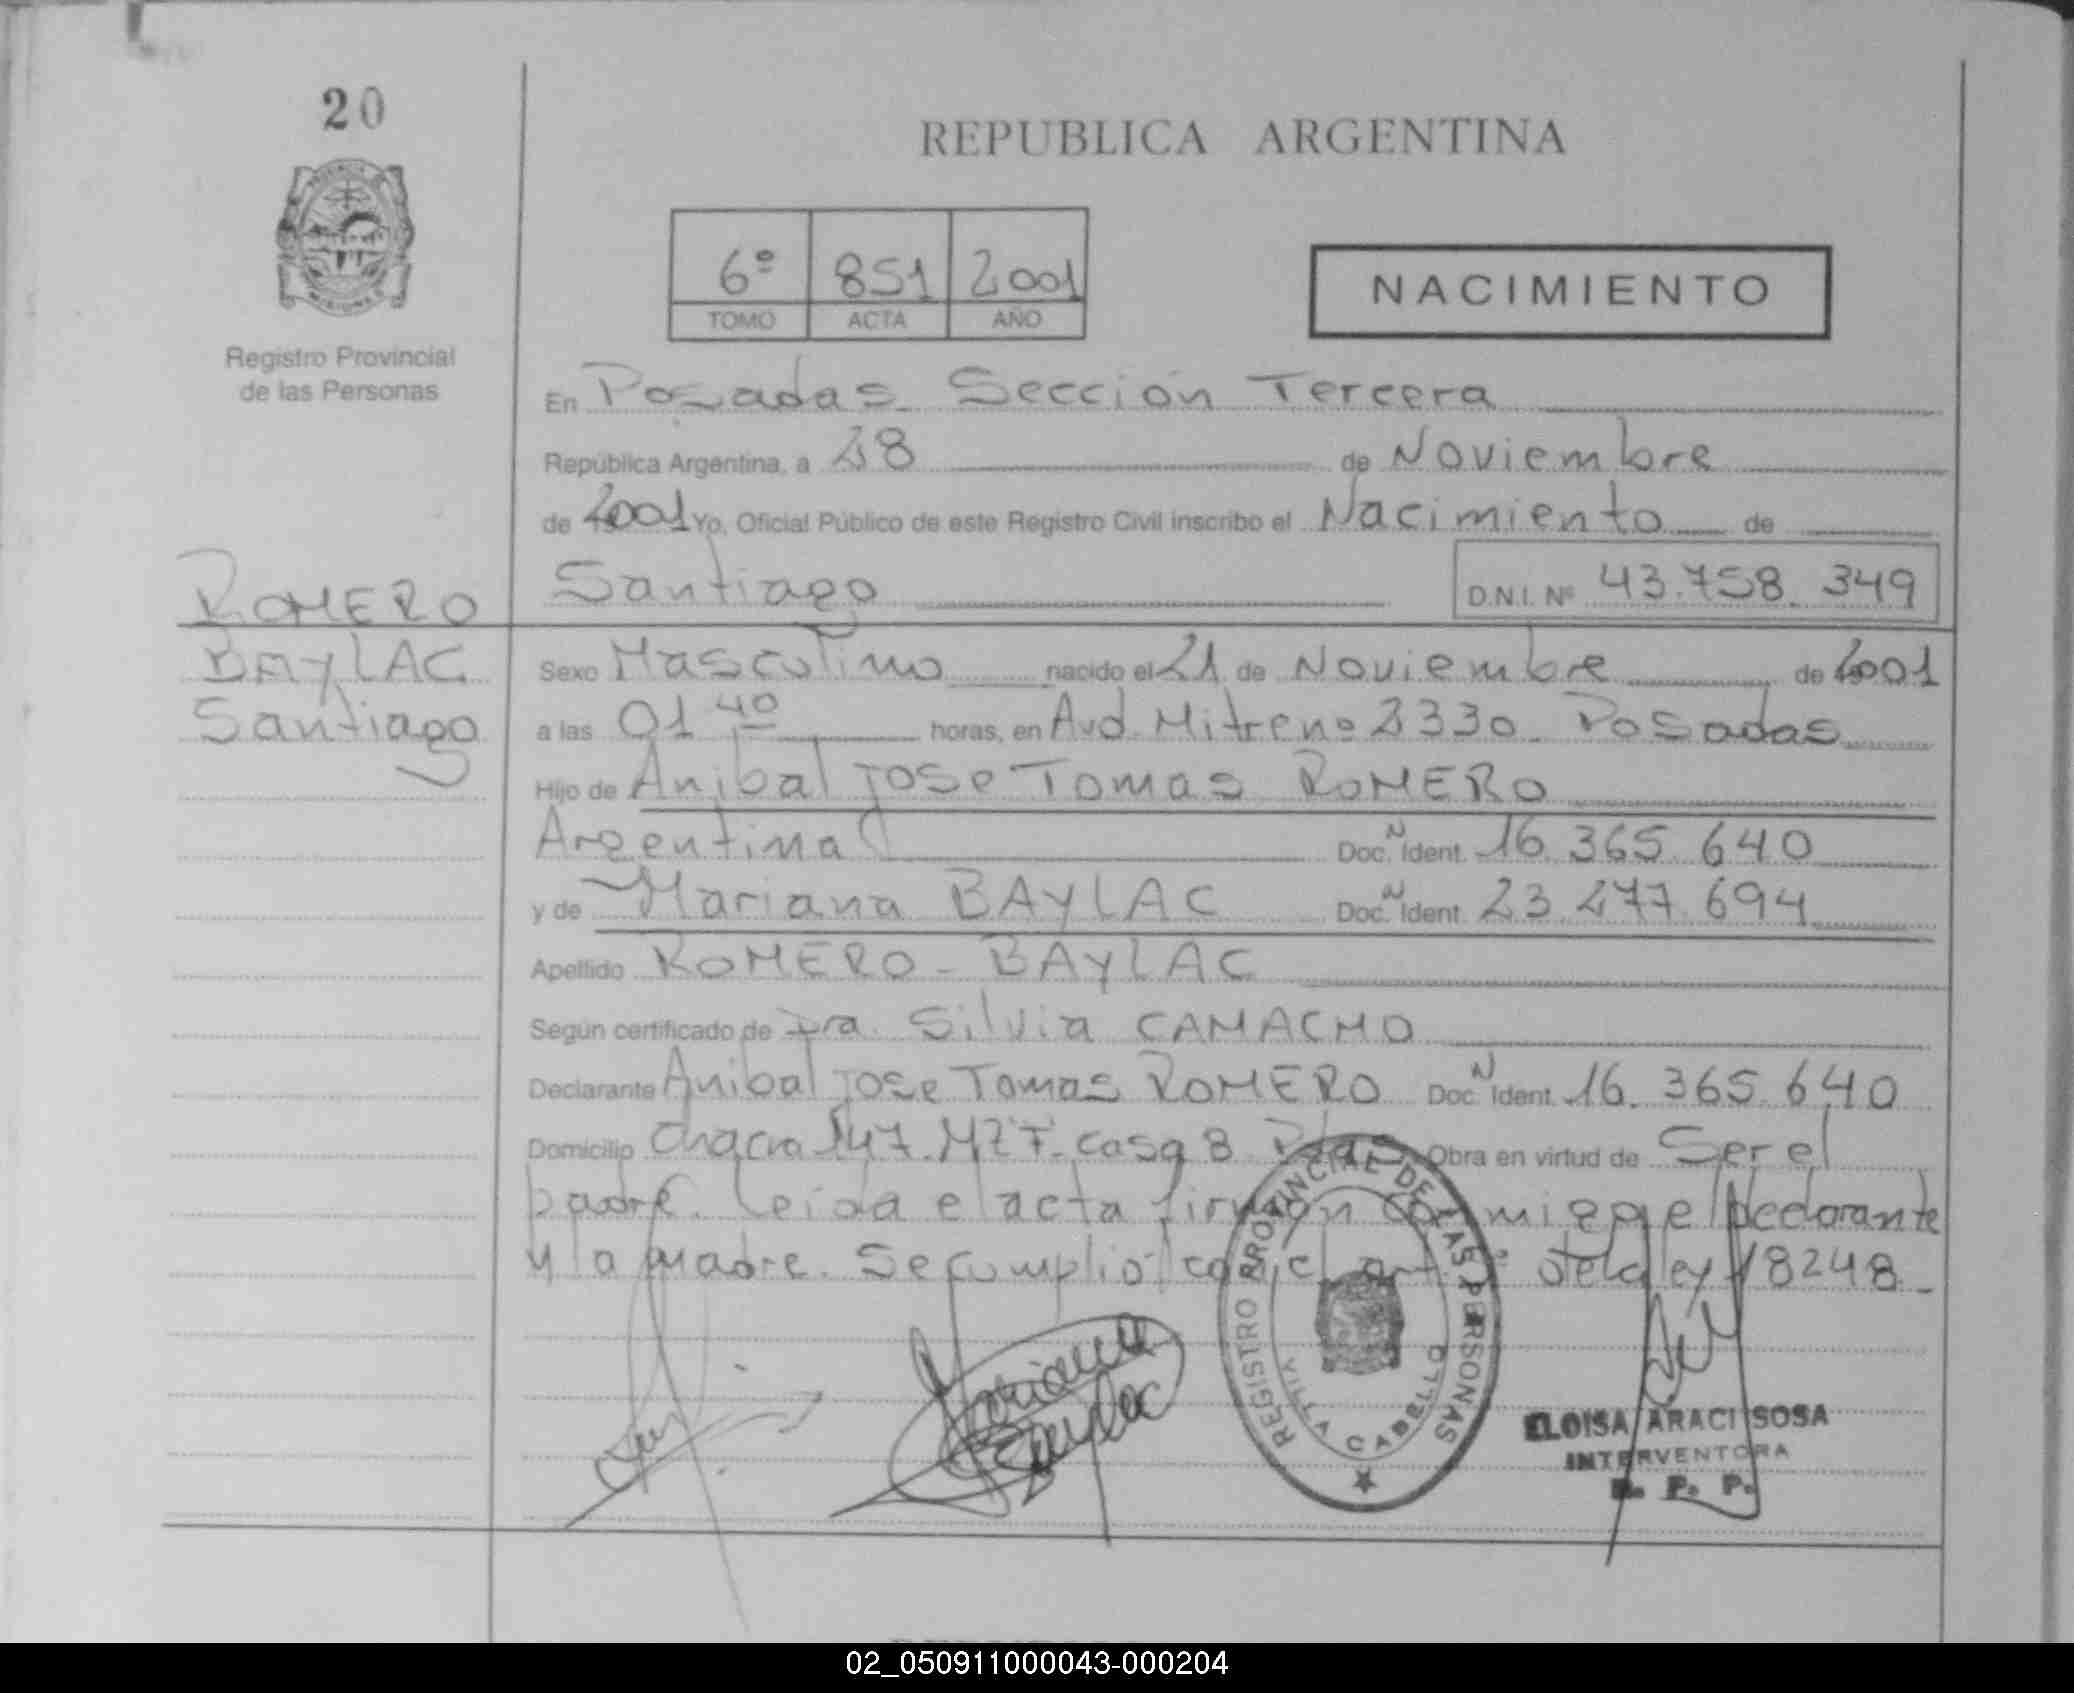 20
REPUBLICA ARGENTINA
6º 851 2001
TOMO ACTA AÑO
NACIMIENTO
Registro Provincial
de las Personas
En Posadas Sección Tercera
República Argentina, a 28 de Noviembre
de 2001 Yo, Oficial Público de este Registro Civil inscribo el Nacimiento de
Santiago D.N.I. Nº 43.758.349
ROMERO
BAYLAC
Santiago
Sexo Masculino nacido el 21 de Noviembre de 2001
a las 01 40 horas, en Avd. Mitre nº 2330. Posadas
Hijo de Anibal Jose Tomas ROMERO
Argentina Doc. N Ident. 16.365.640
y de Mariana BAYLAC Doc. N Ident. 23.277.694
Apellido ROMERO - BAYLAC
Según certificado de Dra. Silvia CAMACHO
Declarante Anibal Jose Tomas ROMERO Doc. N Ident. 16.365.640
Domicilio Chacra 147. MZ F. casa 8 Pdas Obra en virtud de Ser el
padre. leida el acta firman conmigo el declarante
y la madre. Se cumplió con el art. de la ley 18248
Mariana
Baylac
REGISTRO PROVINCIAL DE LAS PERSONAS
VILLA CABELLO
ELOISA ARACI SOSA
INTERVENTORA
R. P. P.
02_050911000043-000204